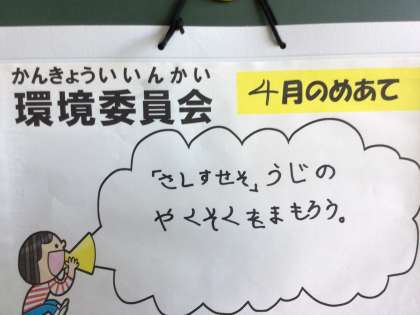 かんきょういいんかい
環境委員会
4月のめあて
「さしすせそ」うじの
やくそくをまもろう。